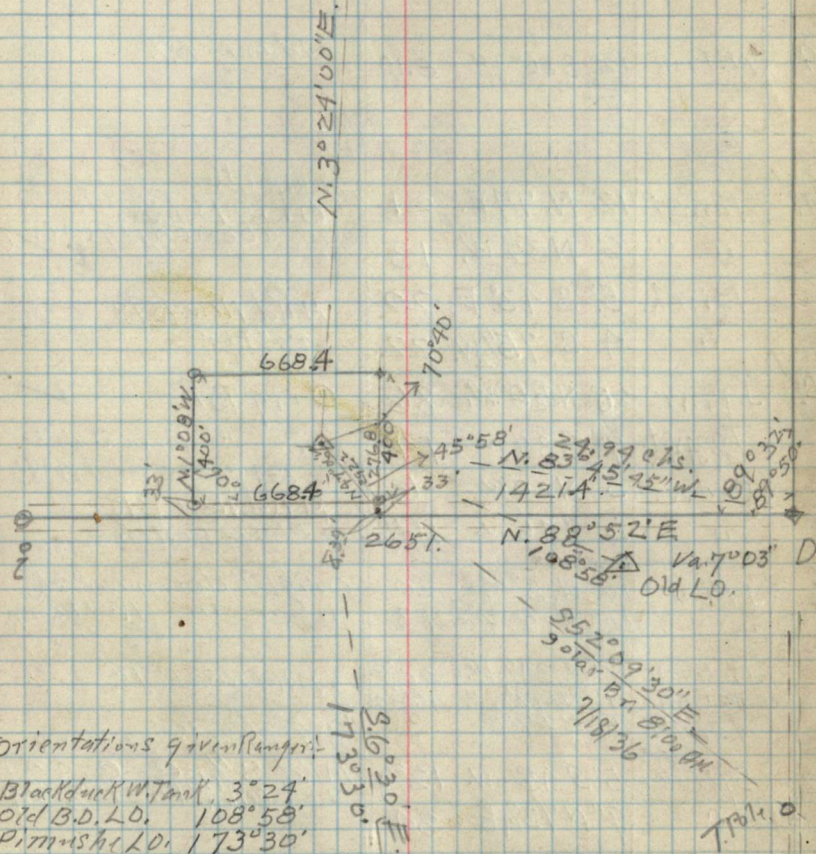 N. 3° 24' 00" E.
70° 40'
668.4
N 1° 08' W.
400'
33'
70°
668.4
276.8
400
45° 58'
33
24.94 chs.
N. 83° 45' 45" W.
1421.4
89° 37'
89° 50'
2651.
N. 88° 52' E
108° 58'
Va. 7° 03"
Old L.O.
D
S 52° 09' 30" E
Solar Br. 8:00 AM
7/18/36
S. 6° 30' E.
173° 30'
T. Pole.
Orientations given Ranger:-
Blackduck W. Tank, 3° 24'
Old B.D. L.O. 108° 58'
Pimushe L.O. 173° 30'